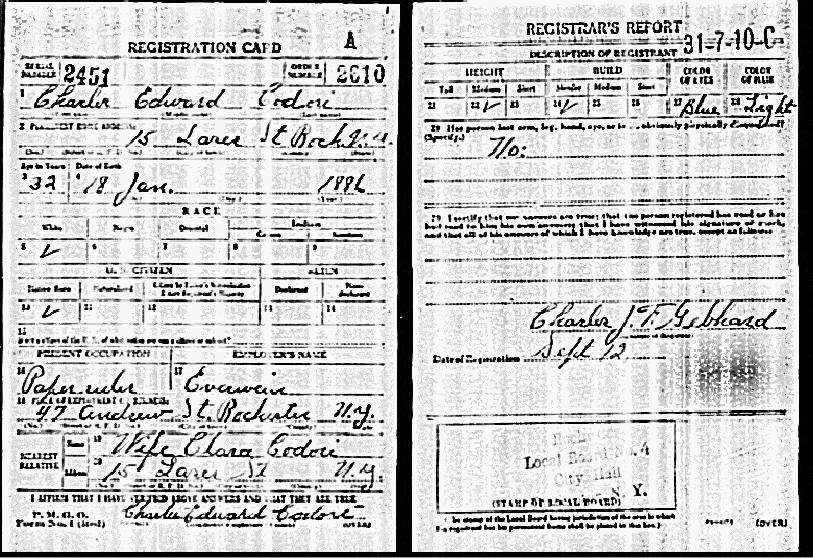 REGISTRATION CARD A
SERIAL NUMBER 2451 ORDER NUMBER 2610
1 Charles Edward Codori
2 PERMANENT HOME ADDRESS
15 St Roch N.Y.
Age in Years Date of Birth
3 32 4 18 Jan. 1886
RACE
White Negro Oriental Indian
5 ✓ 6 7 8 9
U. S. CITIZEN ALIEN
Native Born Naturalized Declarant
10 ✓ 11 12 13 14
15
PRESENT OCCUPATION EMPLOYER'S NAME
16 Paper ruler 17
18 PLACE OF EMPLOYMENT OR BUSINESS
47 Andrew St. Rochester N.Y.
NEAREST RELATIVE Name 19 Wife Clara Codori
Address 20 15 St N.Y.
I AFFIRM THAT I HAVE VERIFIED ABOVE ANSWERS AND THAT THEY ARE TRUE
P. M. G. O.
Form No. 1 (Red) Charles Edward Codori (OVER)
REGISTRAR'S REPORT 31-7-10-C
DESCRIPTION OF REGISTRANT
HEIGHT BUILD COLOR OF EYES COLOR OF HAIR
Tall Medium Short Slender Medium Stout
21 22 ✓ 23 24 ✓ 25 26 27 Blue 28 Light
29 Has person lost arm, leg, hand, eye, or is obviously physically disqualified?
(Specify.) No.
30 I certify that my answers are true; that the person registered has read or has
had read to him his own answers; that I have witnessed his signature or mark,
and that all of his answers of which I have knowledge are true, except as follows:
Charles J. F. Gebhard
Date of Registration Sept 12
Local Board A
City Hall
N. Y.
(STAMP OF LOCAL BOARD)
The stamp of the Local Board having jurisdiction of the area in which
the registrant has his permanent home shall be placed in this box.)
(OVER)